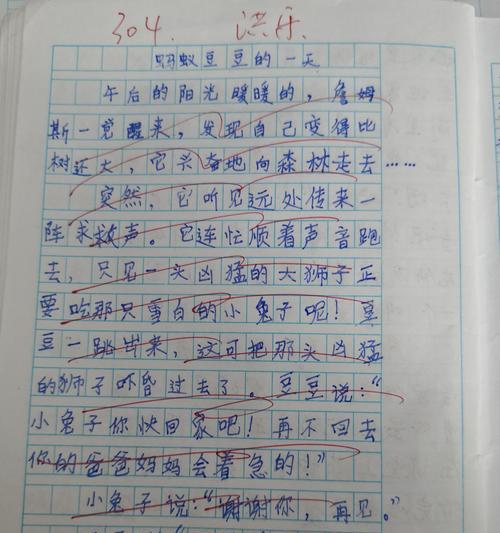 304. 洪乐
蚂蚁豆豆的一天
午后的阳光暖暖的，詹姆
斯一觉醒来，发现自己变得比
树还大，它兴奋地向森林走去……
突然，它听见远处传来一
阵求救声。它连忙顺着声音跑
去，只见一头凶猛的大狮子正
要吃那只雪白的小兔子呢！豆
豆一跳出来，这可把那头凶猛
的狮子吓昏过去了。豆豆说：“
小兔子你快回家吧！再不回去
你的爸爸妈妈会着急的！”
小兔子说：“谢谢你，再见。”